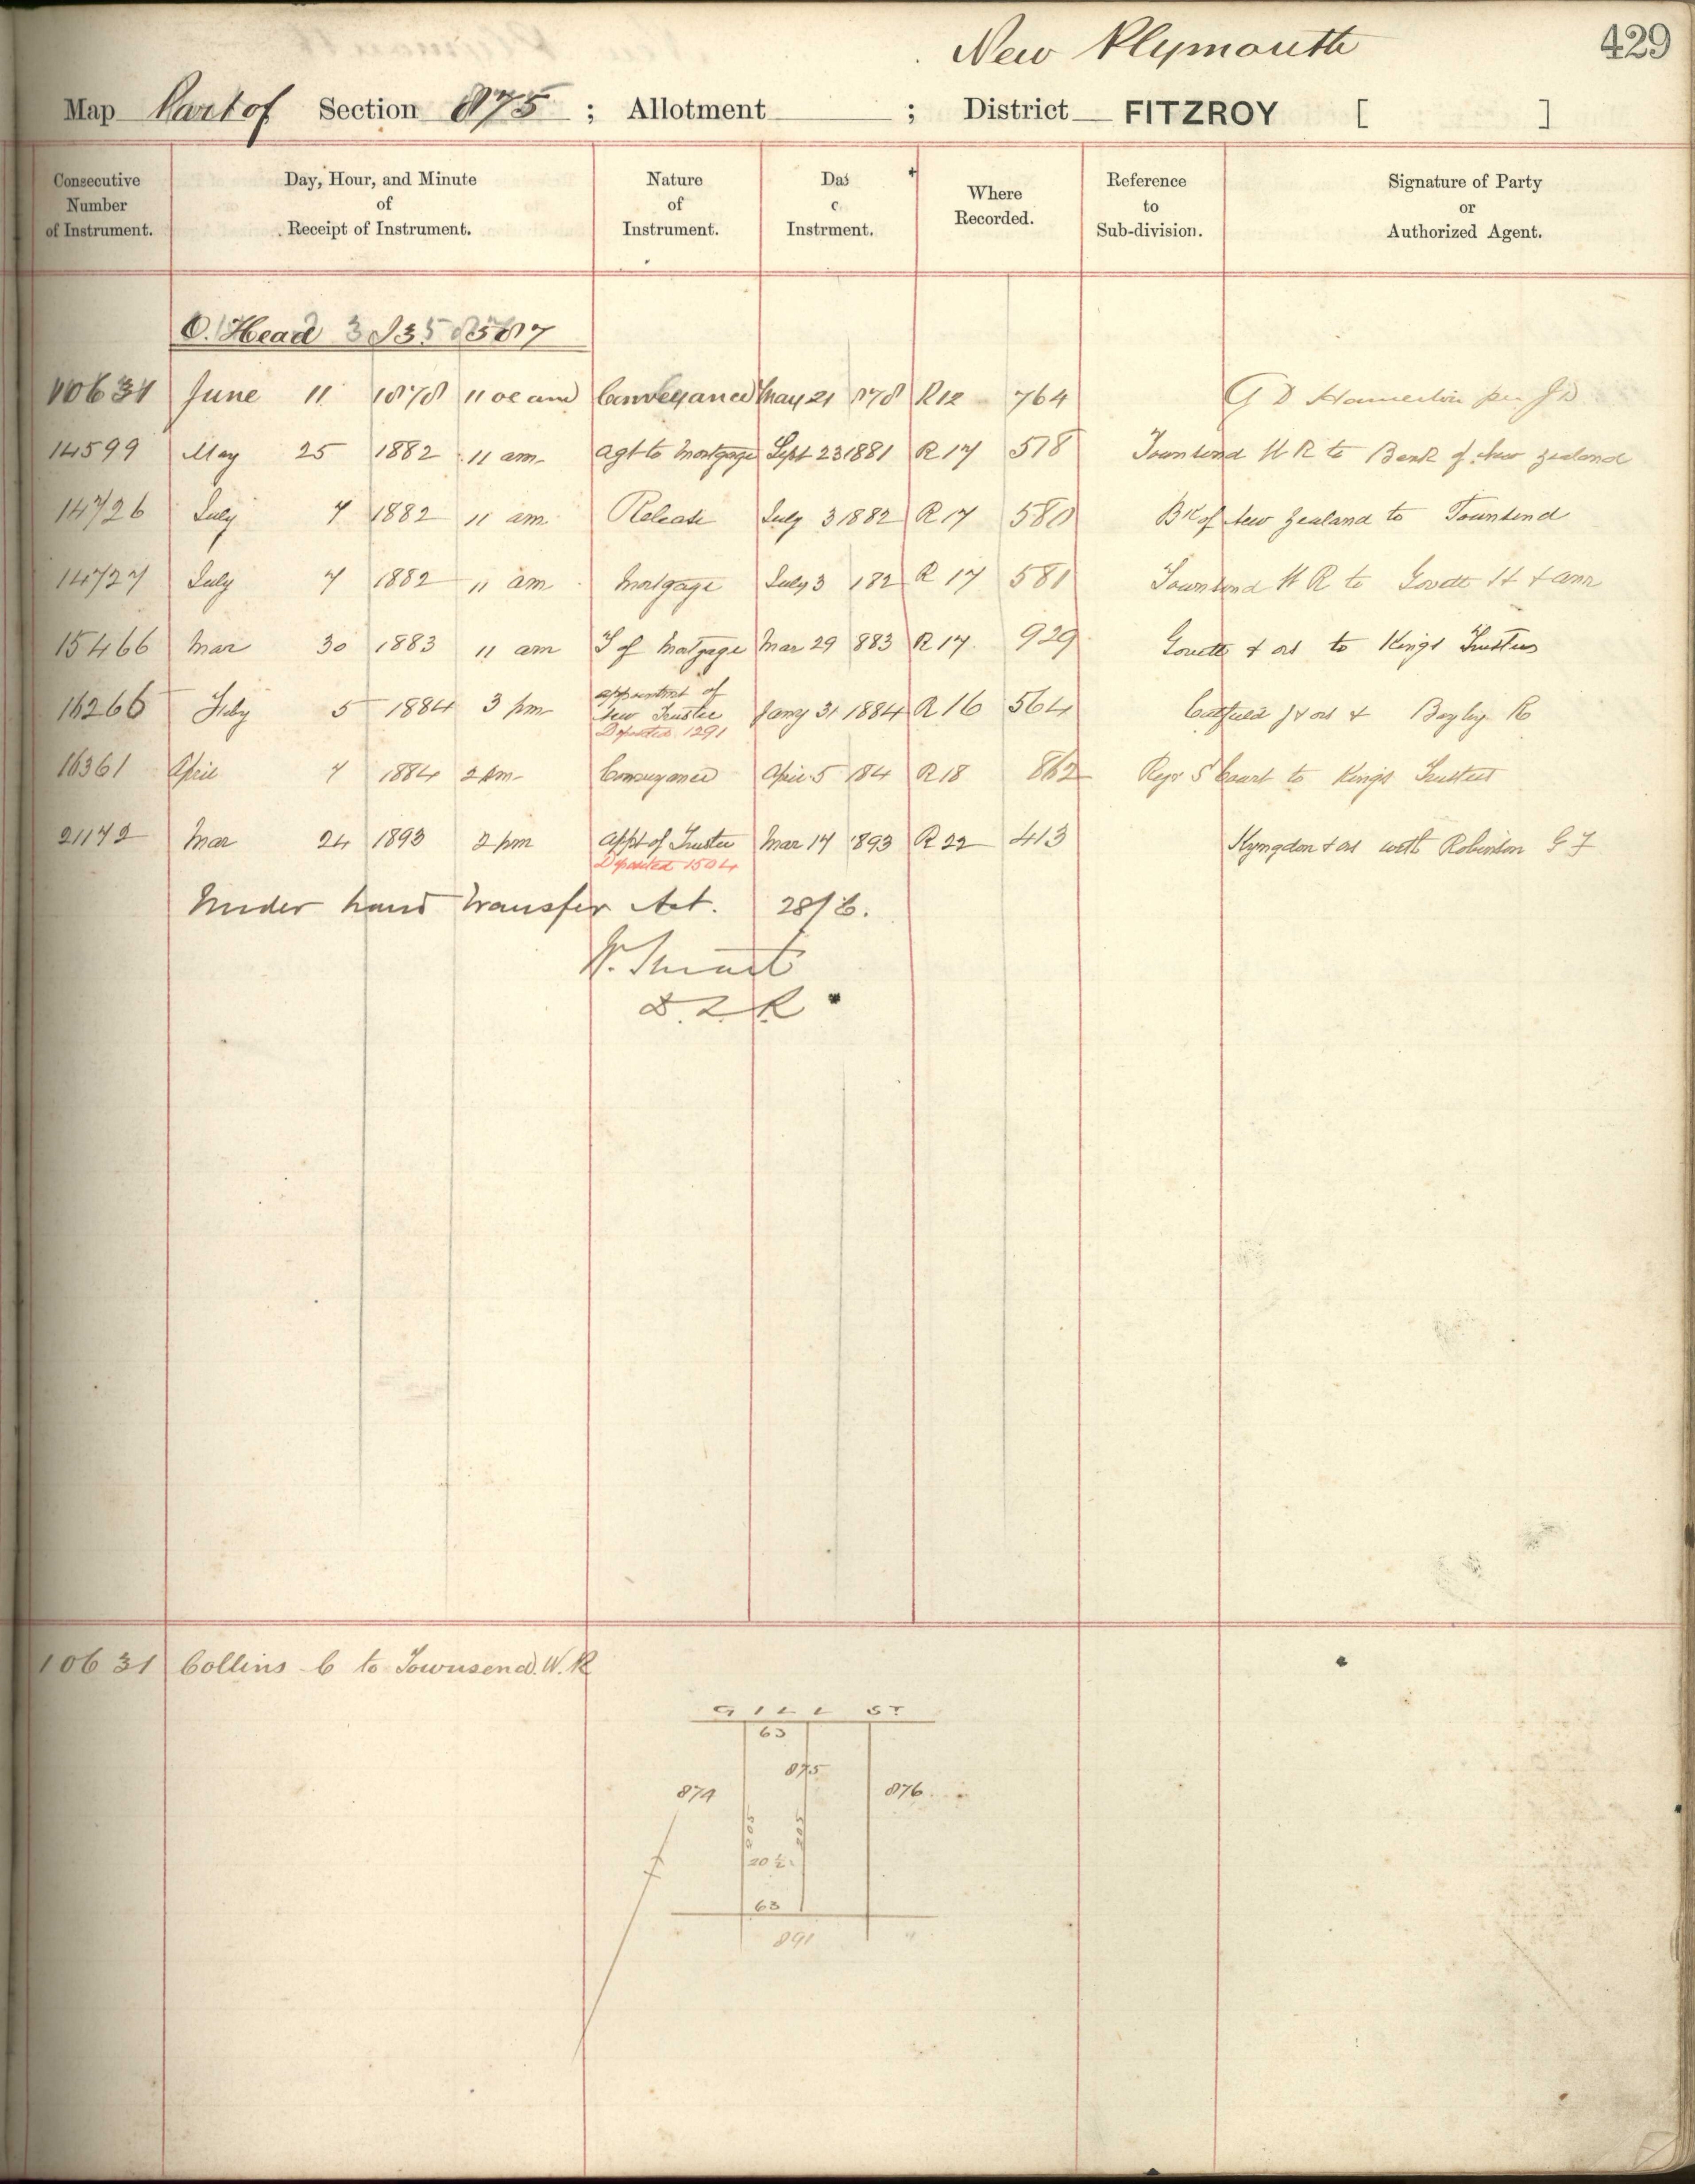 New Plymouth
429
Map Part of Section 875 ; Allotment ; District FITZROY [ ]
Consecutive Number of Instrument.
Day, Hour, and Minute of Receipt of Instrument.
Nature of Instrument.
Instrment.
Where Recorded.
Reference to Sub-division.
Signature of Party or Authorized Agent.
O. Head
10631 June 11 1878 11 oc am Conveyance May 21 1878 R12 764 G D Hamerton per
14599 May 25 1882 11 am Agt to Mortgage Sept 23 1881 R 17 518 Townsend W R to Bank of New Zealand
14726 July 7 1882 11 am Release July 3 1882 R 17 580 Bk of New Zealand to Townsend
14727 July 7 1882 11 am Mortgage July 3 182 R 17 581 Townsend W R to Govett &
15466 Mar 30 1883 11 am T of Mortgage Mar 29 1883 R 17. 929 Govett & ors to Kings Trustees
16266 5 1884 3 pm appointmt of New Trustee Jany 31 1884 R 16 564 & Bayly R
Deposited 1291
16361 April 7 1884 2 pm Conveyance April 5 184 R18 862 Regr S Court to Kings Trustees
21172 Mar 24 1893 2 pm Appt of Trustee Mar 17 1893 R 22 413 Kyngdon & ors with Robinson
Deposited 1504
Under Land Transfer Act. 2816.
D. L. R
10631 Collins C to Townsend. W. R
GILL ST
63
875
874
876
205
205
63
891